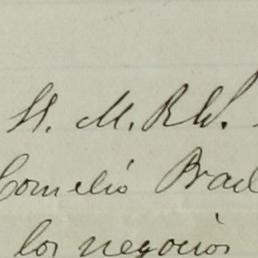 H. M. R. W.
Cornelio Brad
los negocios